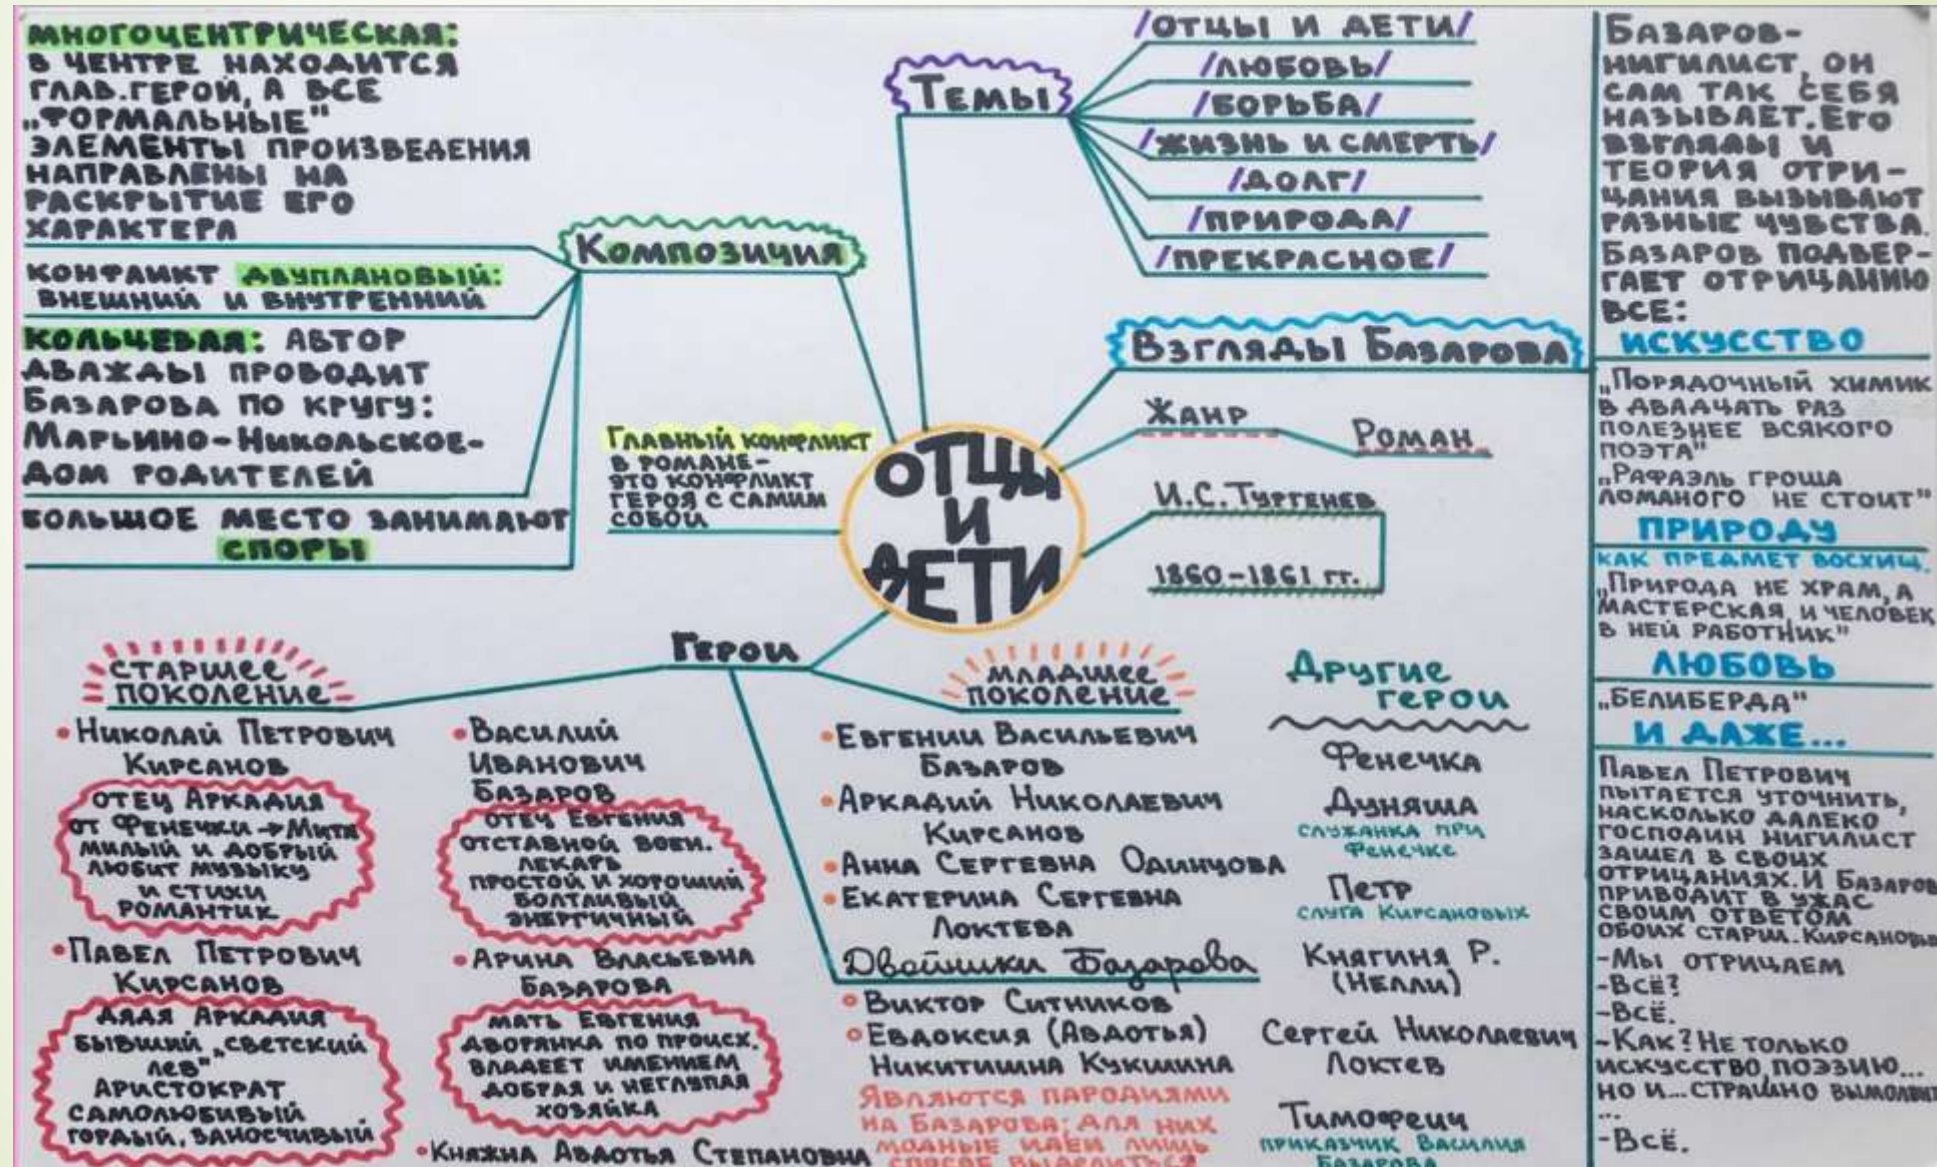 МНОГОЦЕНТРИЧЕСКАЯ:
В ЦЕНТРЕ НАХОДИТСЯ
ГЛАВ.ГЕРОЙ, А ВСЕ
„ФОРМАЛЬНЫЕ"
ЭЛЕМЕНТЫ ПРОИЗВЕДЕНИЯ
НАПРАВЛЕНЫ НА
РАСКРЫТИЕ ЕГО
ХАРАКТЕРА
КОНФЛИКТ ДВУПЛАНОВЫЙ:
ВНЕШНИЙ И ВНУТРЕННИЙ
КОЛЬЦЕВАЯ: АВТОР
ДВАЖДЫ ПРОВОДИТ
БАЗАРОВА ПО КРУГУ:
МАРЬИНО-НИКОЛЬСКОЕ-
ДОМ РОДИТЕЛЕЙ
БОЛЬШОЕ МЕСТО ЗАНИМАЮТ
СПОРЫ
КОМПОЗИЦИЯ
ТЕМЫ
/ОТЦЫ И ДЕТИ/
/ЛЮБОВЬ/
/БОРЬБА/
/ЖИЗНЬ И СМЕРТЬ/
/ДОЛГ/
/ПРИРОДА/
/ПРЕКРАСНОЕ/
ВЗГЛЯДЫ БАЗАРОВА
ЖАНР
РОМАН
И.С.ТУРГЕНЕВ
1860-1861 гг.
ГЛАВНЫЙ КОНФЛИКТ
В РОМАНЕ-
ЭТО КОНФЛИКТ
ГЕРОЯ С САМИМ
СОБОЙ
ОТЦЫ
И
ДЕТИ
ГЕРОИ
СТАРШЕЕ
ПОКОЛЕНИЕ
•НИКОЛАЙ ПЕТРОВИЧ
КИРСАНОВ
ОТЕЦ АРКАДИЯ
ОТ ФЕНЕЧКИ→МИТЯ
МИЛЫЙ И ДОБРЫЙ
ЛЮБИТ МУЗЫКУ
И СТИХИ
РОМАНТИК
•ПАВЕЛ ПЕТРОВИЧ
КИРСАНОВ
ДЯДЯ АРКАДИЯ
БЫВШИЙ „СВЕТСКИЙ
ЛЕВ"
АРИСТОКРАТ
САМОЛЮБИВЫЙ
ГОРДЫЙ, ЗАНОСЧИВЫЙ
•ВАСИЛИЙ
ИВАНОВИЧ
БАЗАРОВ
ОТЕЦ ЕВГЕНИЯ
ОТСТАВНОЙ ВОЕН.
ЛЕКАРЬ
ПРОСТОЙ И ХОРОШИЙ
БОЛТЛИВЫЙ
ЭНЕРГИЧНЫЙ
•АРИНА ВЛАСЬЕВНА
БАЗАРОВА
МАТЬ ЕВГЕНИЯ
ДВОРЯНКА ПО ПРОИСХ.
ВЛАДЕЕТ ИМЕНИЕМ
ДОБРАЯ И НЕГЛУПАЯ
ХОЗЯЙКА
•КНЯЖНА АВДОТЬЯ СТЕПАНОВНА
МЛАДШЕЕ
ПОКОЛЕНИЕ
•ЕВГЕНИЙ ВАСИЛЬЕВИЧ
БАЗАРОВ
•АРКАДИЙ НИКОЛАЕВИЧ
КИРСАНОВ
•АННА СЕРГЕВНА ОДИНЦОВА
•ЕКАТЕРИНА СЕРГЕВНА
ЛОКТЕВА
Двойники Базарова
•ВИКТОР СИТНИКОВ
•ЕВДОКСИЯ (АВДОТЬЯ)
НИКИТИШНА КУКШИНА
ЯВЛЯЮТСЯ ПАРОДИЯМИ
НА БАЗАРОВА; ДЛЯ НИХ
МОДНЫЕ ИДЕИ ЛИШЬ
СПОСОБ ВЫДЕЛИТЬСЯ
ДРУГИЕ
ГЕРОИ
ФЕНЕЧКА
ДУНЯША
СЛУЖАНКА ПРИ
ФЕНЕЧКЕ
ПЕТР
СЛУГА КИРСАНОВЫХ
КНЯГИНЯ Р.
(НЕЛЛИ)
СЕРГЕЙ НИКОЛАЕВИЧ
ЛОКТЕВ
ТИМОФЕИЧ
ПРИКАЗЧИК ВАСИЛИЯ
БАЗАРОВА
БАЗАРОВ-
НИГИЛИСТ, ОН
САМ ТАК СЕБЯ
НАЗЫВАЕТ.ЕГО
ВЗГЛЯДЫ И
ТЕОРИЯ ОТРИ-
ЦАНИЯ ВЫЗЫВАЮТ
РАЗНЫЕ ЧУВСТВА.
БАЗАРОВ ПОДВЕР-
ГАЕТ ОТРИЦАНИЮ
ВСЕ:
ИСКУССТВО
„ПОРЯДОЧНЫЙ ХИМИК
В ДВАДЦАТЬ РАЗ
ПОЛЕЗНЕЕ ВСЯКОГО
ПОЭТА"
„РАФАЭЛЬ ГРОША
ЛОМАНОГО НЕ СТОИТ"
ПРИРОДУ
КАК ПРЕДМЕТ ВОСХИЩ.
„ПРИРОДА НЕ ХРАМ, А
МАСТЕРСКАЯ, И ЧЕЛОВЕК
В НЕЙ РАБОТНИК"
ЛЮБОВЬ
„БЕЛИБЕРДА"
И ДАЖЕ...
ПАВЕЛ ПЕТРОВИЧ
ПЫТАЕТСЯ УТОЧНИТЬ,
НАСКОЛЬКО ДАЛЕКО
ГОСПОДИН НИГИЛИСТ
ЗАШЕЛ В СВОИХ
ОТРИЦАНИЯХ.И БАЗАРОВ
ПРИВОДИТ В УЖАС
СВОИМ ОТВЕТОМ
ОБОИХ СТАРШ. КИРСАНОВЫХ
-МЫ ОТРИЦАЕМ
-ВСЁ?
-ВСЁ.
-КАК? НЕ ТОЛЬКО
ИСКУССТВО, ПОЭЗИЮ...
НО И...СТРАШНО ВЫМОЛВИТЬ
...
-ВСЁ.